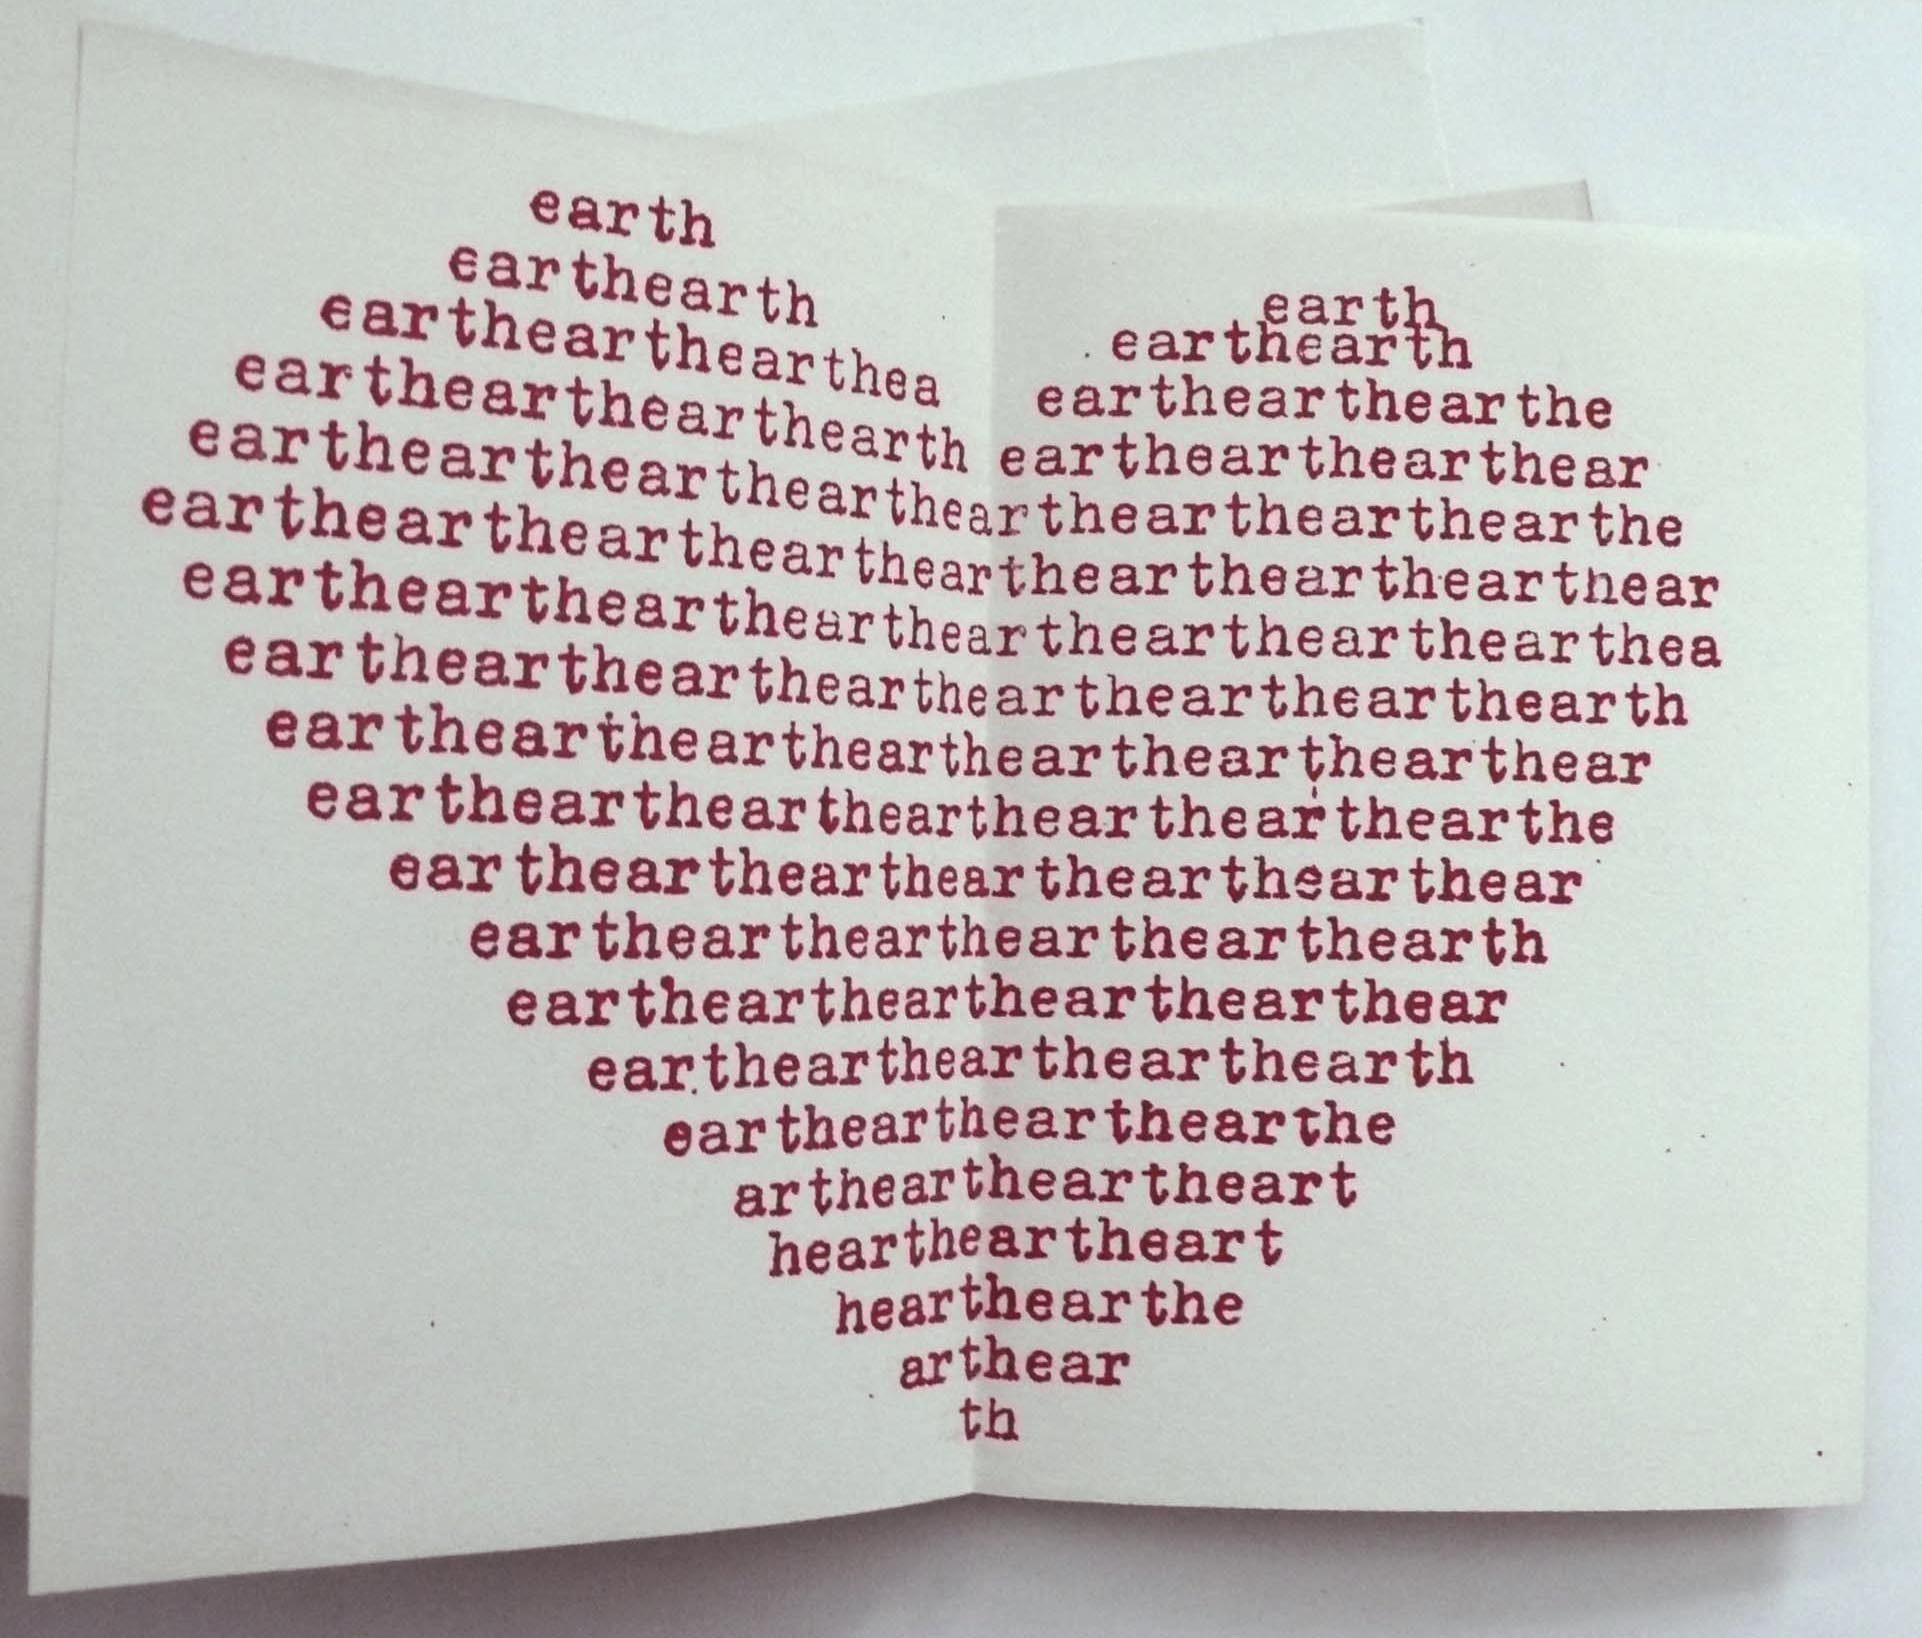 earth earth
earthearth earthearth
earthearthearthea earthearthearthe
earthearthearthearth earthearthearthear
earthearthearthearthearthearthearthearthe
earthearthearthearthearthearthearthearthear
earthearthearthearthearthearthearthearthea
earthearthearthearthearthearthearthearth
earthearthearthearthearthearthearthear
earthearthearthearthearthearthearthe
earthearthearthearthearthearthear
earthearthearthearthearthearth
earthearthearthearthearthear
earthearthearthearthearth
earthearthearthearthe
artheartheartheart
heartheartheart
hearthearthe
arthear
th